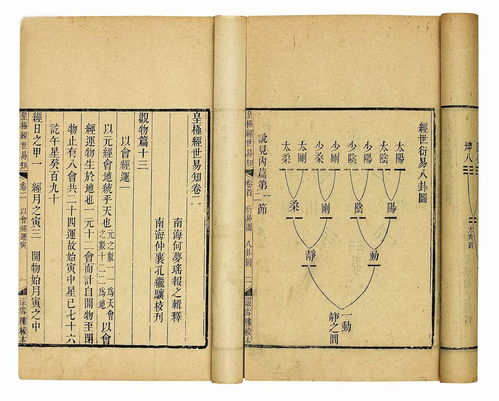 坤八
經世衍易八卦圖
太陽 太陰 少陽 少陰 少剛 少柔 太剛 太柔
陽 陰 剛 柔
動 靜
一動
靜之間
說見內篇第一節
皇極經世易知 卷首 衍易圖 八卦圖 二
皇極經世易知卷二
南海何夢瑤報之輯釋
南海仲襄孔繼驤校刊
觀物篇十三
以會經運一
以元經會地統乎天也元之數一一為天會之數十二二為地以會
經運物生於地也一元十二會而計自開物至閉
物止有八會共二十四運故始寅中星己七十六
訖午星癸百九十
經日之甲一 經月之寅三 開物始月寅之中
皇極經世易知 卷二 以會經運寅